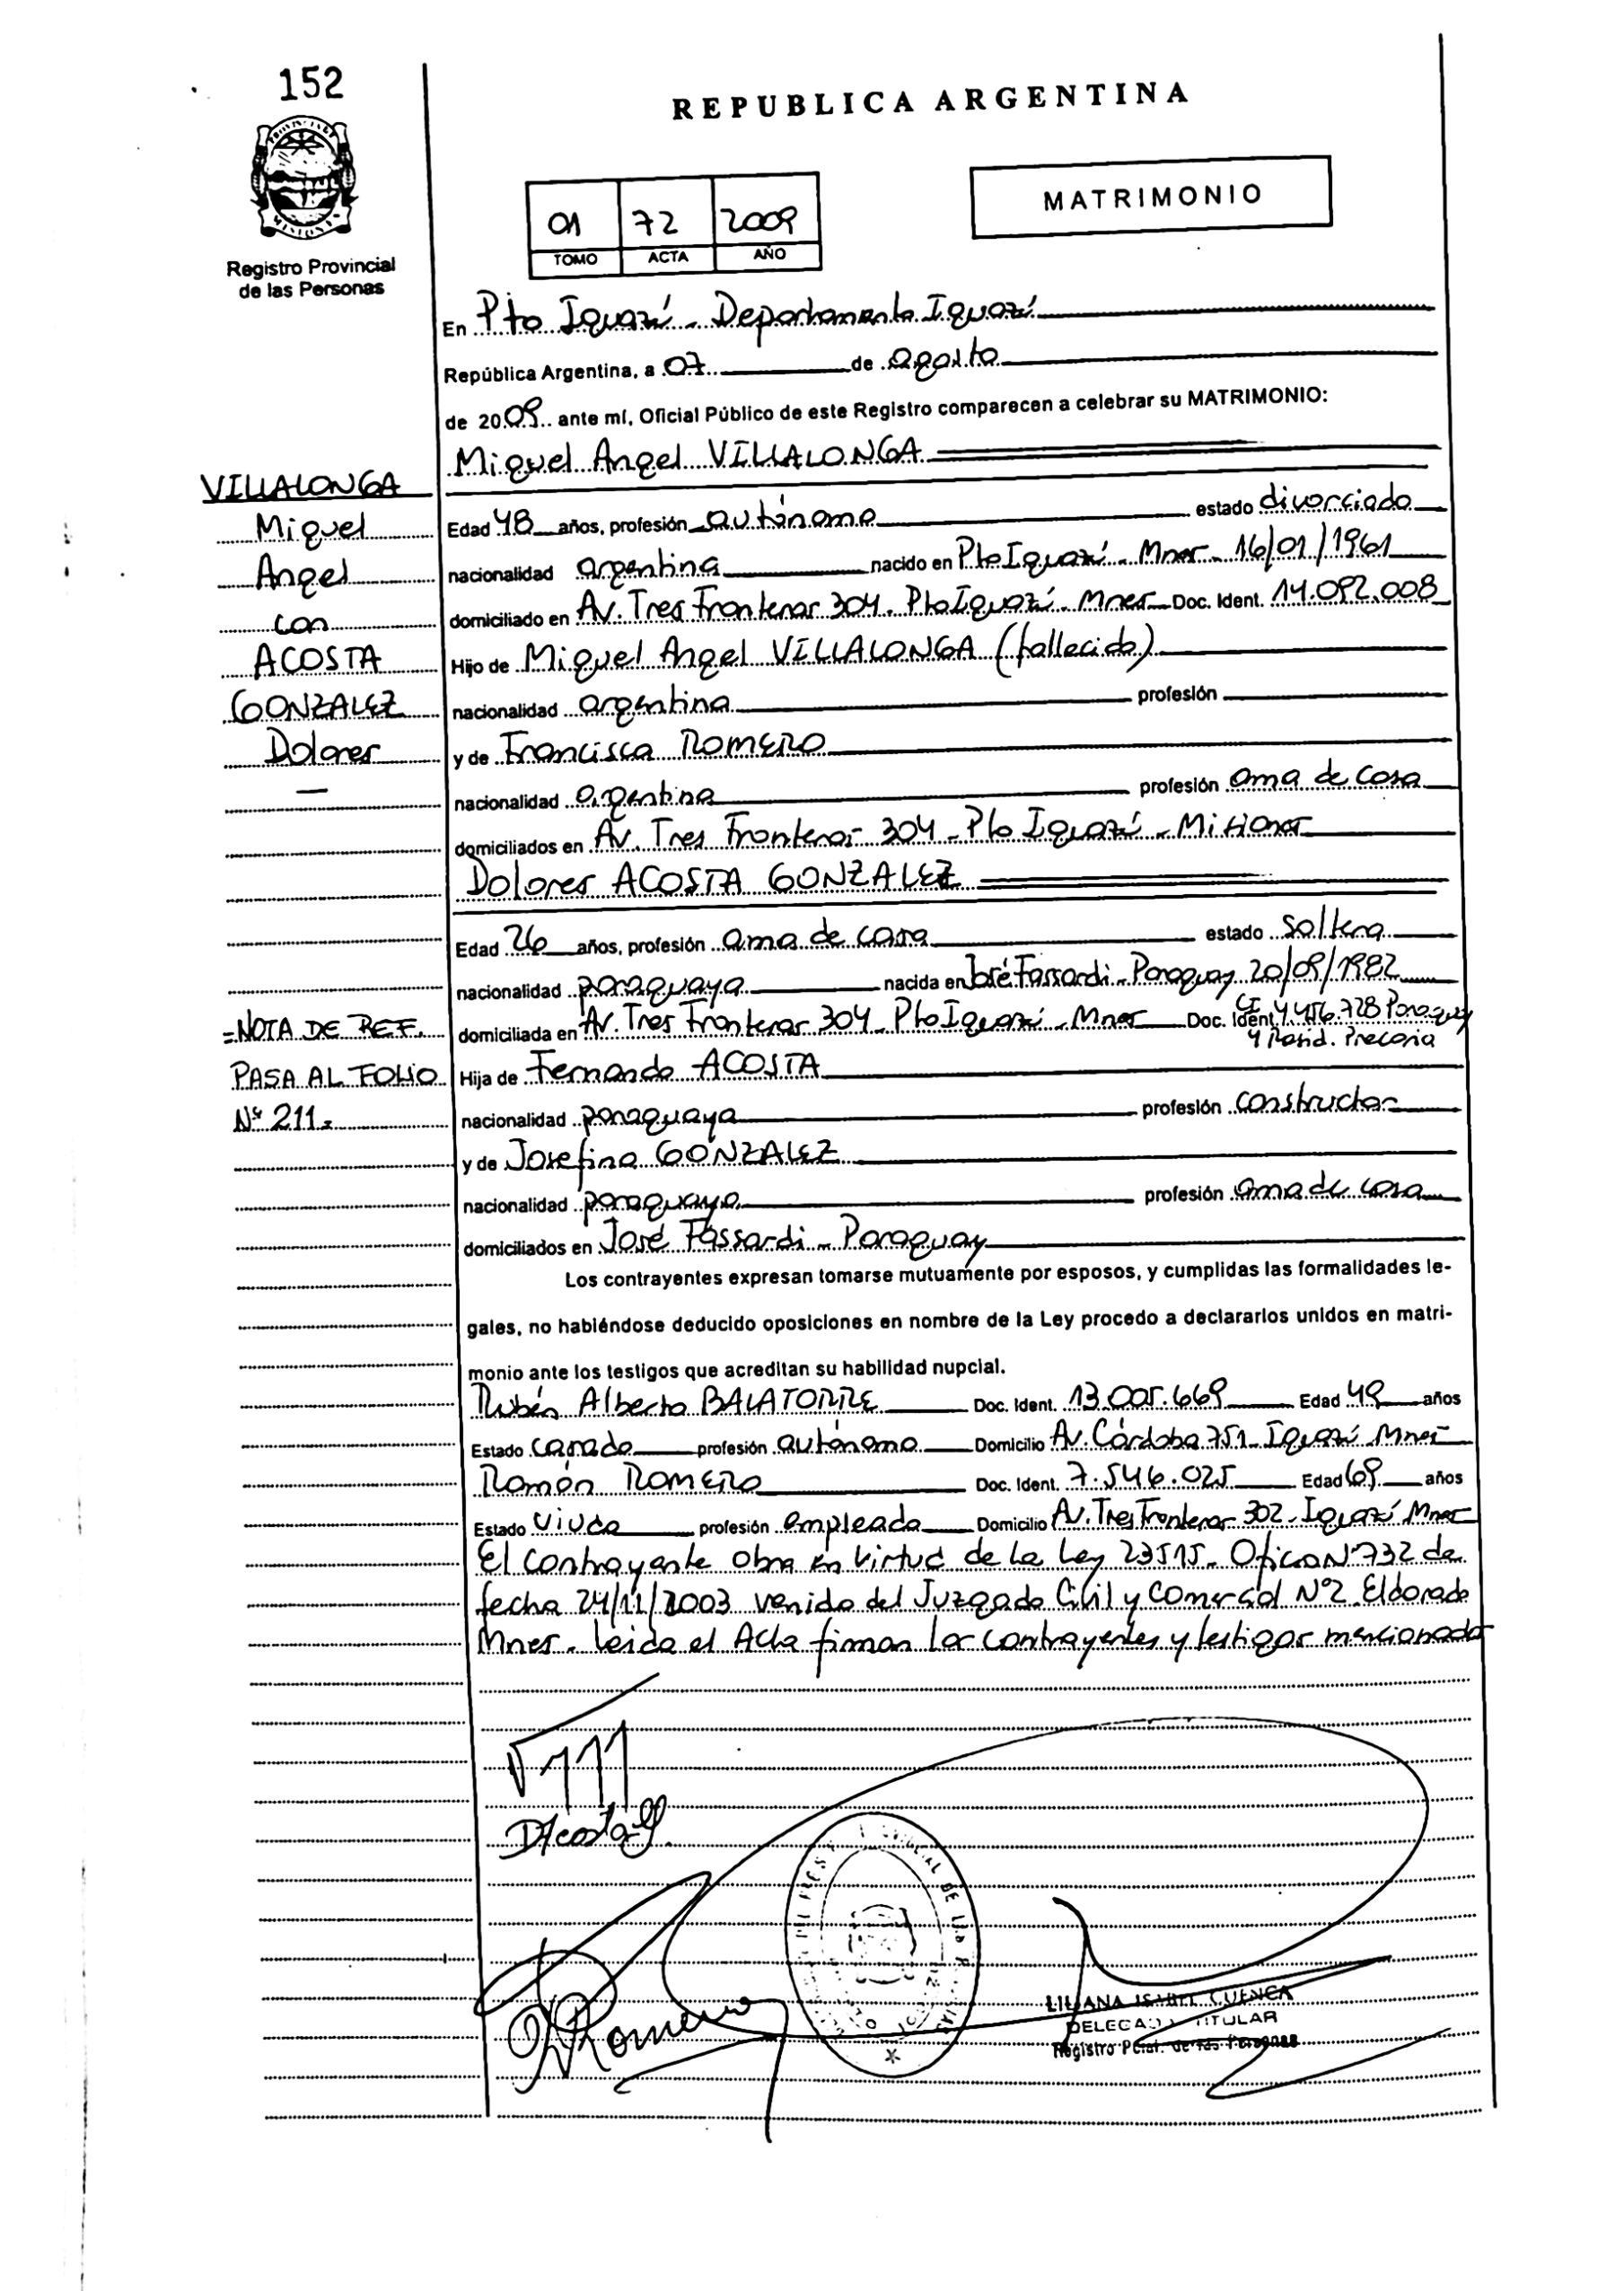 152
REPUBLICA ARGENTINA
MATRIMONIO
01 72 2009
TOMO ACTA AÑO
Registro Provincial
de las Personas
En Pto Iguazú - Departamento Iguazú
República Argentina, a 07 de agosto
de 2009 ante mí, Oficial Público de este Registro comparecen a celebrar su MATRIMONIO:
Miguel Angel VILLALONGA
VILLALONGA
Miguel
Angel
con
ACOSTA
GONZALEZ
Dolores
Edad 48 años, profesión autónomo estado divorciado
nacionalidad argentina nacido en Pto Iguazú - Mnes - 16/01/1961
domiciliado en Av. Tres Fronteras 304 - Pto Iguazú - Mnes Doc. Ident. 14.092.008
Hijo de Miguel Angel VILLALONGA (fallecido)
nacionalidad argentina profesión
y de Francisca ROMERO
nacionalidad argentina profesión ama de casa
domiciliados en Av. Tres Fronteras 304 - Pto Iguazú - Misiones
Dolores ACOSTA GONZALEZ
Edad 26 años, profesión ama de casa estado soltera
nacionalidad paraguaya nacida en José Fassardi - Paraguay 20/09/1982
domiciliada en Av. Tres Fronteras 304 - Pto Iguazú - Mnes Doc. Ident. CI 4.456.728 Paraguay
y Resid. Precaria
=NOTA DE REF.
PASA AL FOLIO
Nº 211=
Hija de Fernando ACOSTA
nacionalidad paraguaya profesión constructor
y de Josefina GONZALEZ
nacionalidad paraguaya profesión ama de casa
domiciliados en José Fassardi - Paraguay
Los contrayentes expresan tomarse mutuamente por esposos, y cumplidas las formalidades le-
gales, no habiéndose deducido oposiciones en nombre de la Ley procedo a declararlos unidos en matri-
monio ante los testigos que acreditan su habilidad nupcial.
Rubén Alberto BALATORRE Doc. Ident. 13.005.669 Edad 49 años
Estado casado profesión autónomo Domicilio Av. Córdoba 751 - Iguazú Mnes
Ramón ROMERO Doc. Ident. 7.546.025 Edad 69 años
Estado viudo profesión empleado Domicilio Av. Tres Fronteras 302 - Iguazú Mnes
El contrayente obra en virtud de la Ley 23515 - Oficio Nº 732 de
fecha 24/11/2003 venido del Juzgado Civil y Comercial Nº 2 Eldorado
Mnes - Leída el Acta firman los contrayentes y testigos mencionados
DAcostaG.
Romero
LILIANA ISABEL CUENCA
DELEGADA TITULAR
Registro Pcial. de las Personas